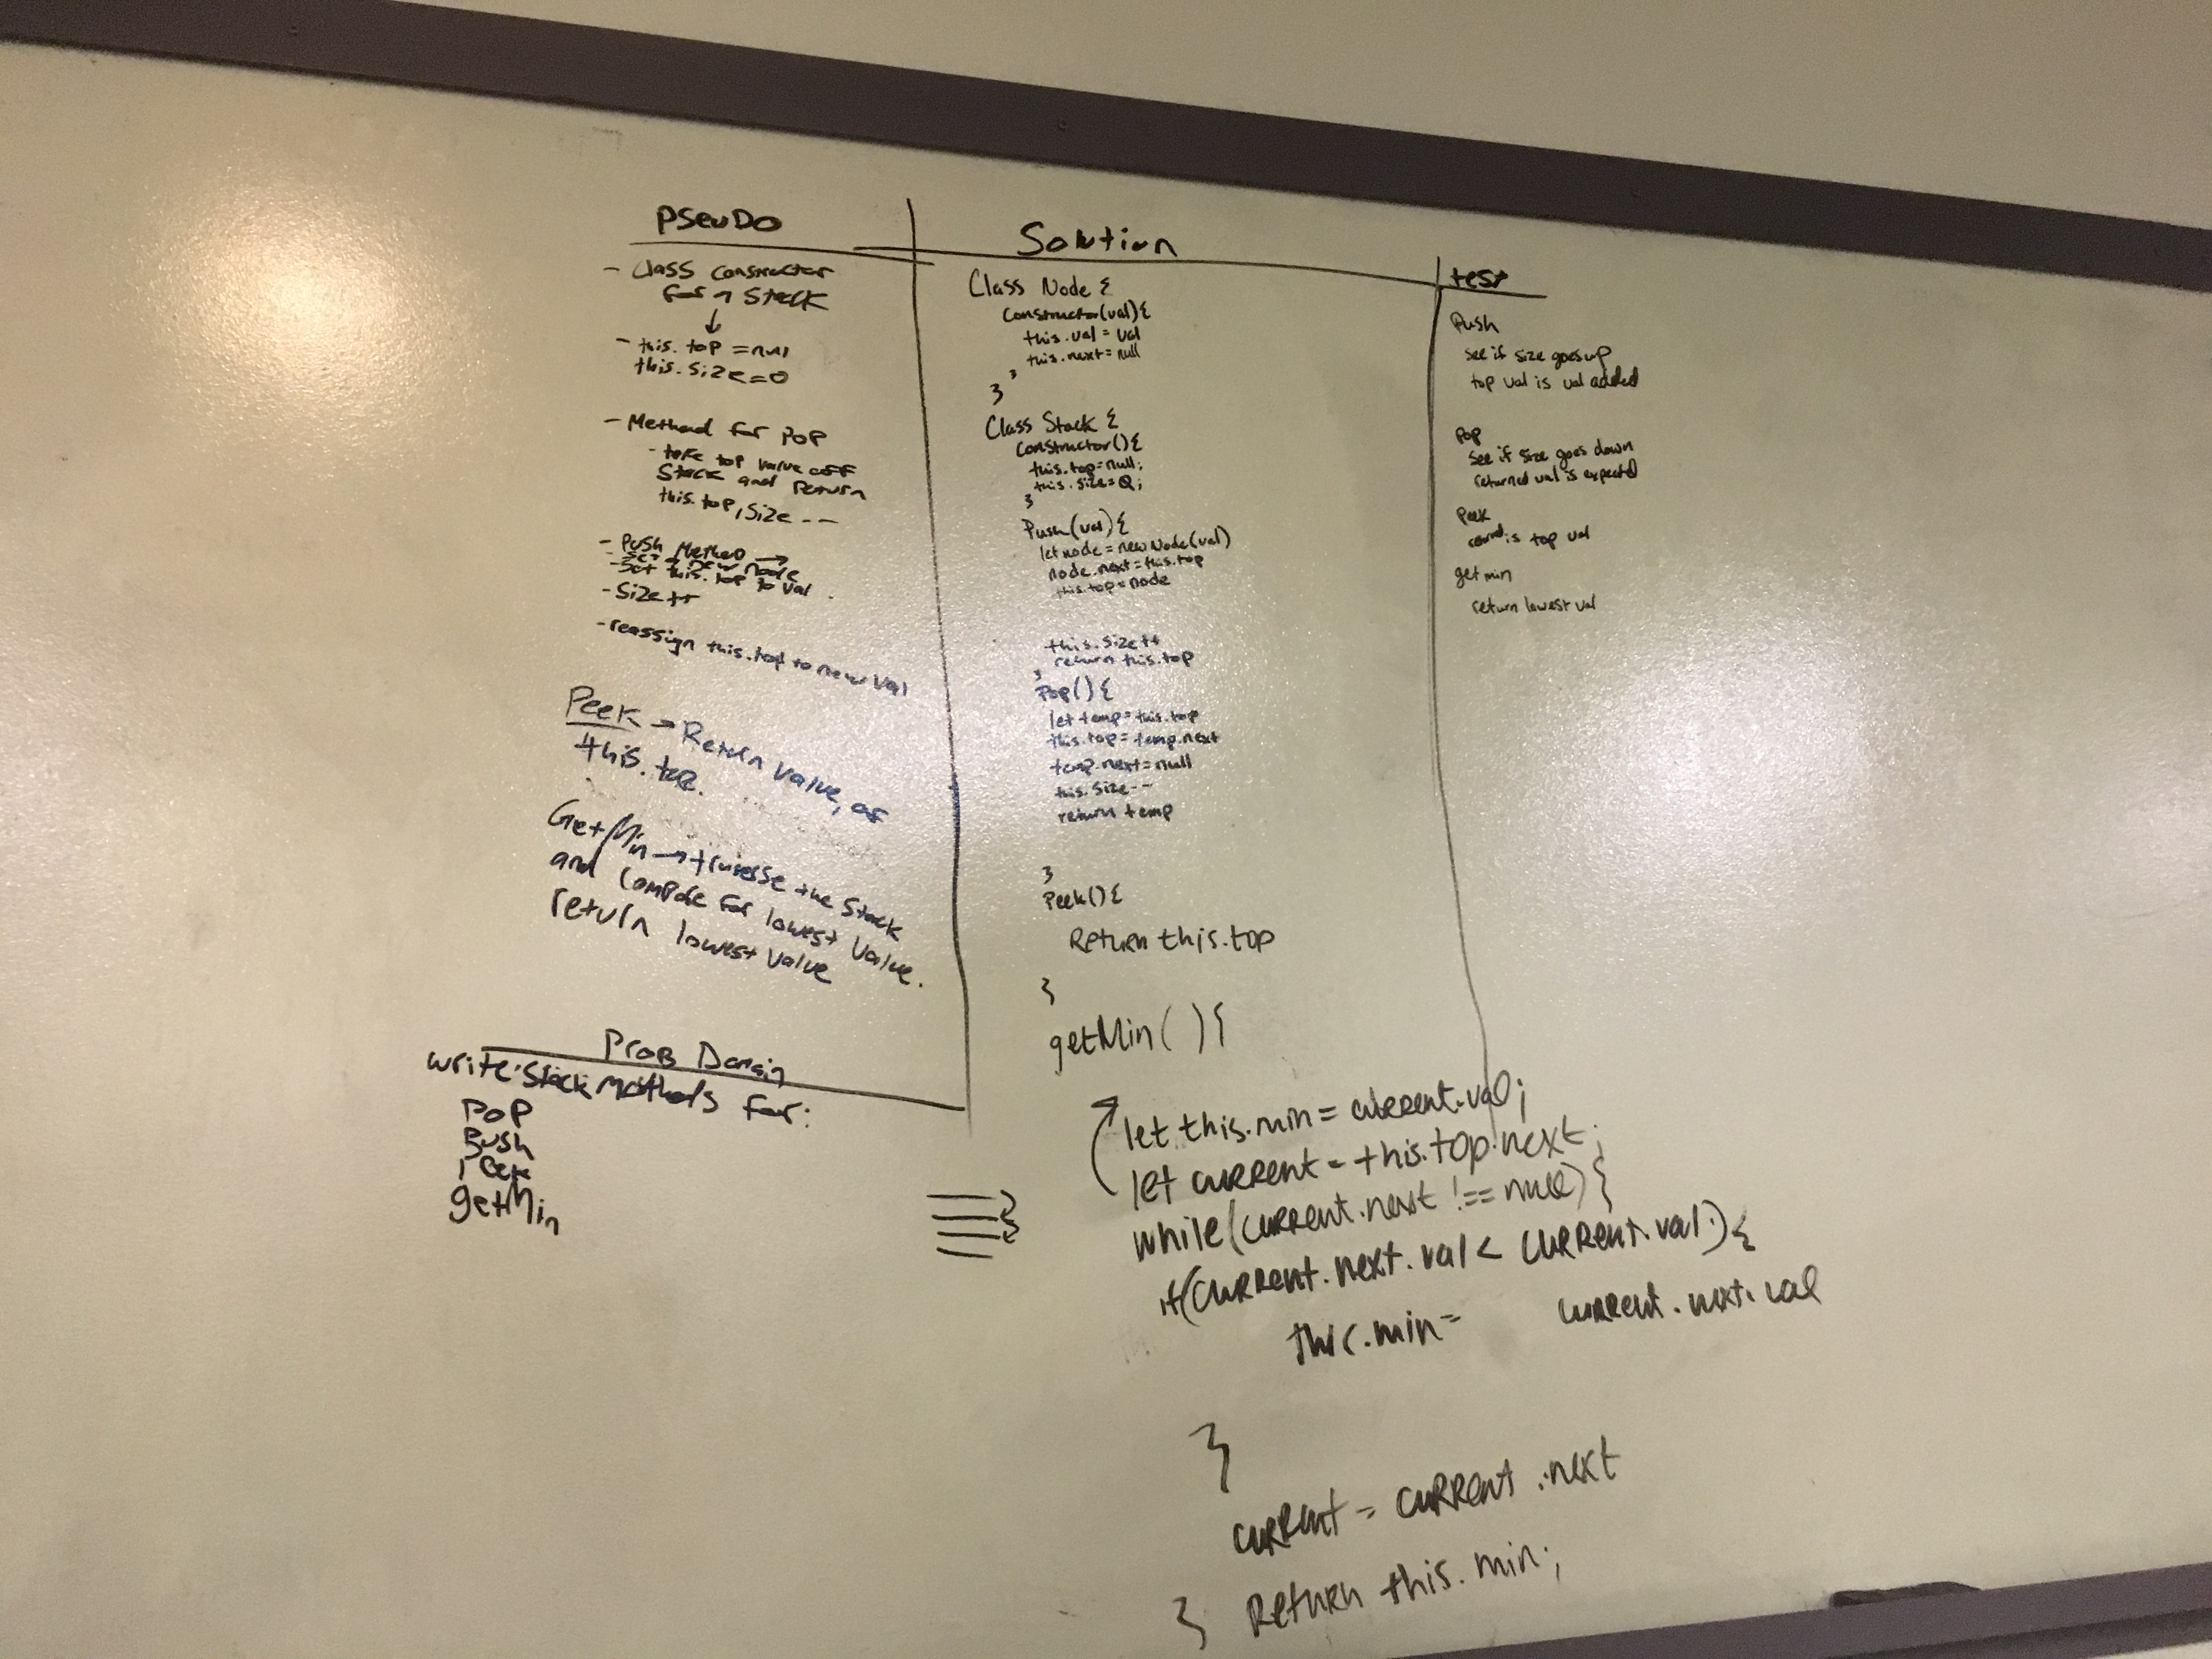 PseuDo
- Class Constructor
for a Stack
- this.top = null
this.size = 0
- Method for POP
- take top value off
Stack and return
this.top, Size --
- Push Method →
- Set new node
- Set this.top to val
- Size ++
- reassign this.top to new val
Peek → Return value, of
this.top.
GetMin → traverse the Stack
and compare for lowest value.
return lowest value
Prob Domain
write Stack Methods for:
POP
Push
Peek
getMin
Solution
Class Node {
Constructor(val){
this.val = val
this.next = null
}
}
Class Stack {
Constructor(){
this.top=null;
this.size=0;
}
Push(val){
let node = new Node(val)
node.next = this.top
this.top = node
this.size++
return this.top
}
Pop(){
let temp = this.top
this.top = temp.next
temp.next = null
this.size--
return temp
}
Peek(){
Return this.top
}
getMin( ){
let this.min = current.val;
let current = this.top.next;
while(current.next !== null){
if(current.next.val < current.val){
this.min = current.next.val
}
current = current.next
} Return this.min;
test
Push
see if size goes up
top val is val added
Pop
see if size goes down
returned val is expected
Peek
is top val
get min
return lowest val